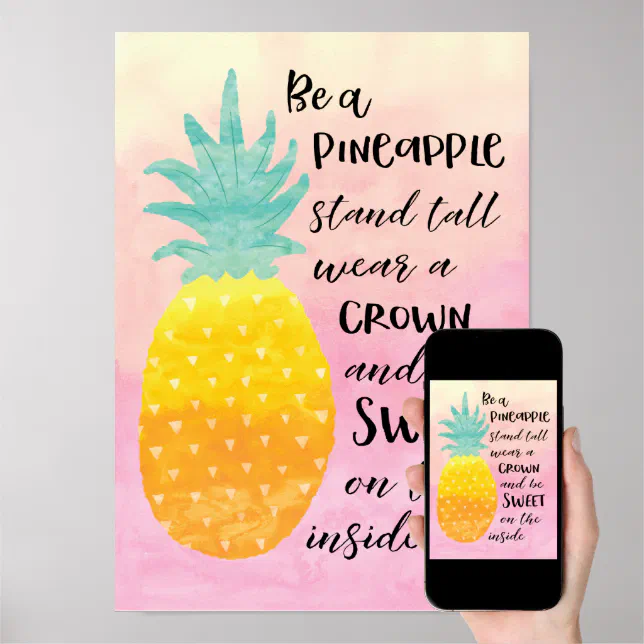 Be a
PINEAPPLE
stand tall
wear a
CROWN
and
SW
on t
inside
Be a
PINEAPPLE
stand tall
wear a
CROWN
and be
SWEET
on the
inside